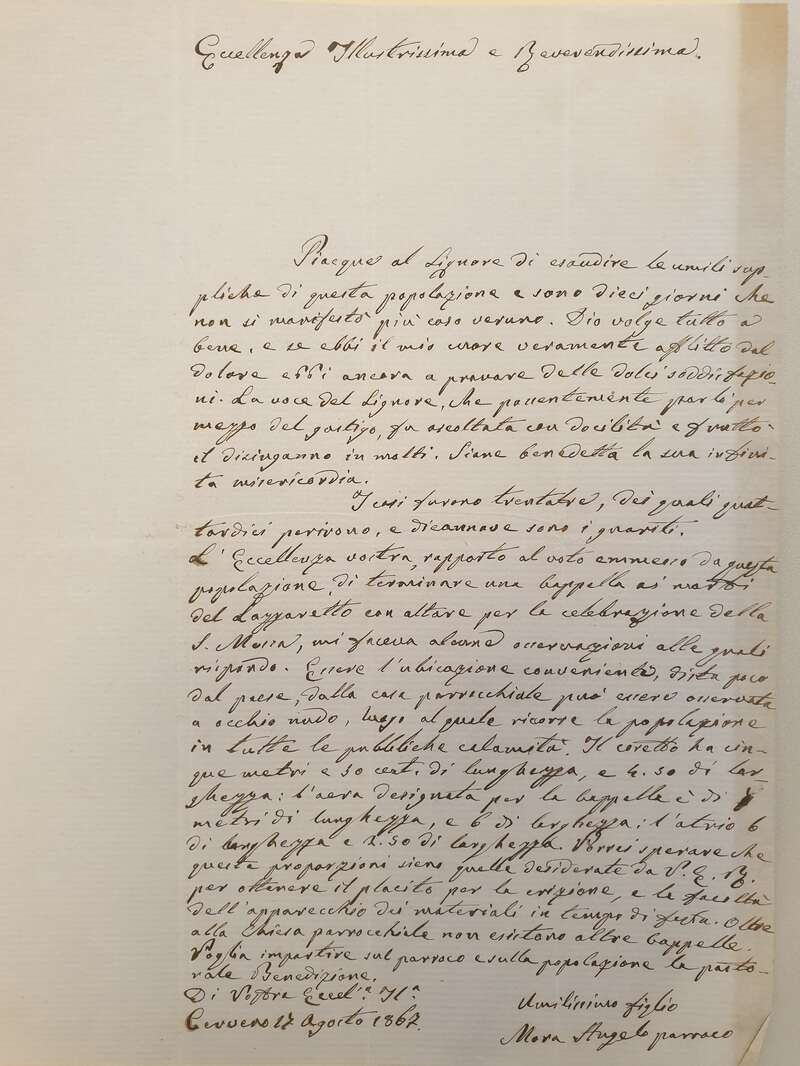 Eccellenza Illustrissima e Reverendissima.
Piacque al Signore di esaudire le umili sup-
pliche di questa popolazione e sono dieci giorni che
non si manifestò più caso veruno. Dio volge tutto a
bene, e se ebbi il mio cuore veramente afflitto dal
dolore ebbi ancora a provare delle dolci soddisfazio-
ni. La voce del Signore, che potentemente parlò per
mezzo del gastigo, fu ascoltata con docilità e fruttò
il disinganno in molti. Siane benedetta la sua infini-
ta misericordia.
I casi furono trentatre, dei quali quat-
tordici perirono, e dicannove sono i guariti.
L'Eccellenza vostra, rapporto al voto emmesso da questa
popolazione, di terminare una Cappella ai morti
del Lazzaretto con altare per la celebrazione della
S. Messa, mi faceva alcune osservazioni alle quali
rispondo. Essere l'ubicazione conveniente, dista poco
dal paese, dalla casa parrocchiale può essere osservata
a occhio nudo, luogo al quale ricorse la popolazione
in tutte le pubbliche calamità. Il coretto ha cin-
que metri e 50 cent. di lunghezza, e 4.50 di lar-
ghezza: l'aera designata per la Cappella è di
metri di lunghezza, e 6 di larghezza: l'atrio 6
di lunghezza e 2.50 di larghezza. Vorrei sperare che
queste proporzioni siено quelle desiderate da V. E. R.
per ottenere il placito per la erezione, e la facoltà
dell'apparecchio dei materiali in tempo di festa. Oltre
alla Chiesa parrocchiale non esistono altre Cappelle.
Voglia impartire sul parroco e sulla popolazione la pasto-
rale Benedizione.
Di Vostra Eccel.ª Ill.ª
Umilissimo figlio
Cerveno 17 Agosto 1867.
Mora Angelo parroco